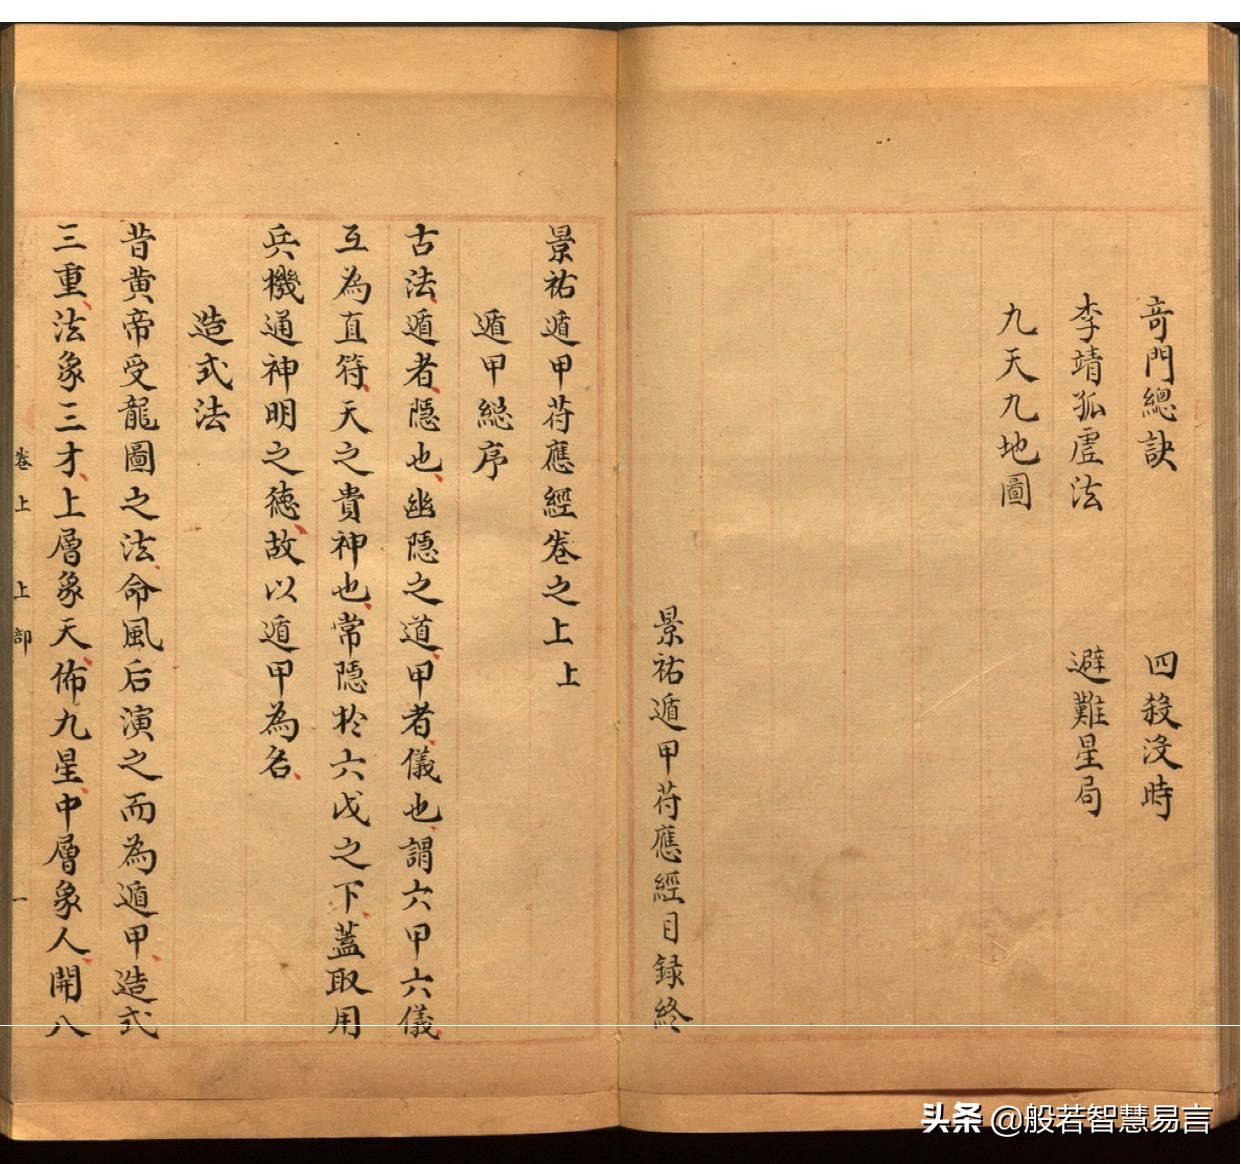 奇門總訣　四殺沒時
李靖孤虛法　避難星局
九天九地圖
景祐遁甲符應經目録終
景祐遁甲符應經卷之上上
遁甲総序
古法遁者隱也幽隱之道甲者儀也謂六甲六儀
互為直符天之貴神也常隱於六戊之下蓋取用
兵機通神明之德故以遁甲為名
造式法
昔黄帝受龍圖之法命風后演之而為遁甲造式
三重法象三才上層象天佈九星中層象人開八
卷上　上部　一
头条 @般若智慧易言